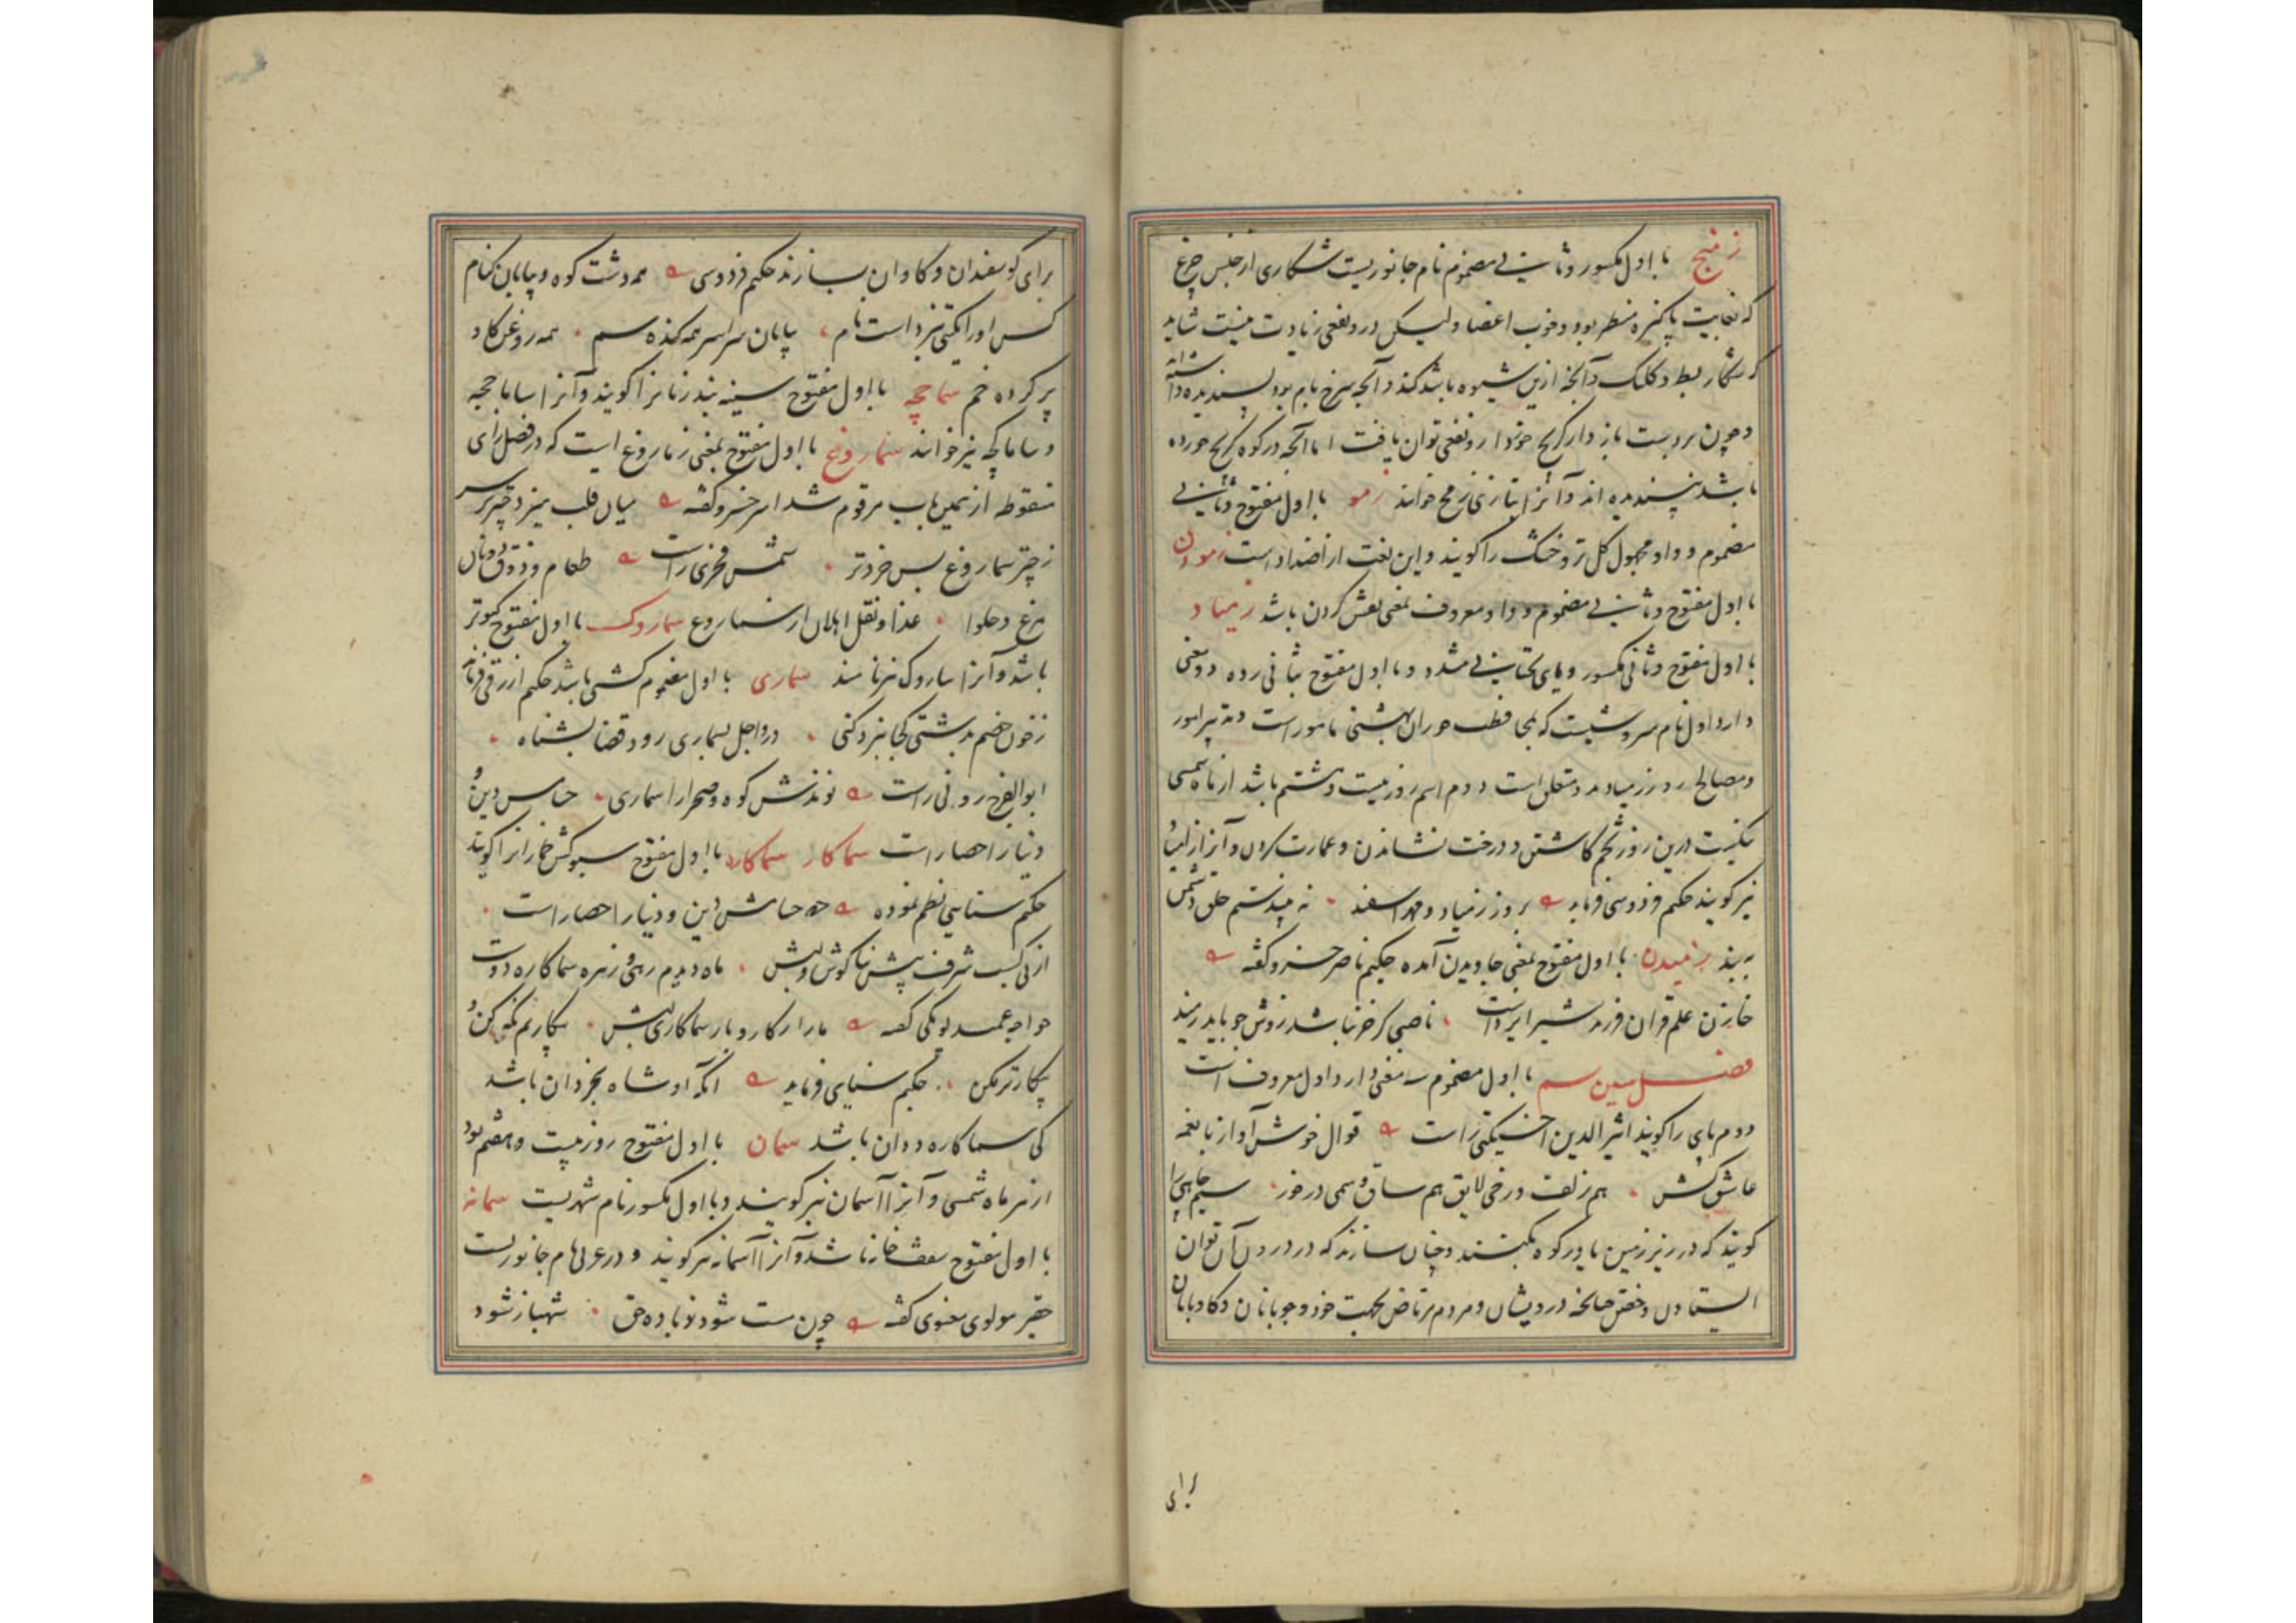 زمنج با اول مکسور و ثانی مضموم نام جانوریست شکاری از جنس چرغ
که بغایت پاکیزه منظر بود و خوب اعضا ولیکن درو نفعی زیادت نیست شاید
که شکار بط و کلنک و آنچه ازین شیوه باشد کند و آنچه سرخ بام بود پسندیده داشته اند
و چون بر دست باز دار کریج خورد ازو نفعی توان یافت اما آنچه در کوه کریج خورده
باشد نپسندیده اند و آنرا بتازی زمج خوانند زمو با اول مفتوح و ثانی
مضموم و واو مجهول کل تر و خشک را کویند و این لغت از اضداد است زمودن
با اول مفتوح و ثانی مضموم و واو معروف بمعنی نقش کردن باشد زمیاد
با اول مفتوح و ثانی مکسور و یای تحتانی مشدد و با اول مفتوح بثانی زده دو معنی
دارد اول نام سروشیست که بمحافظت حوران بهشتی مامور است و تدبیر امور
و مصالح روز زمیاد بدو متعلق است دوم اسم روز بیست و هشتم باشد از ماه شمسی
نیکست درین روز تخم کاشتن و درخت نشاندن و عمارت کردن و آنرا
نیز کویند حکیم فردوسی فرماید بروز زمیاد و مهر اسفند نه
به بند زمیدن با اول مفتوح بمعنی جاویدن آمده حکیم ناصر خسرو کفته
خازن علم قران فرزند شیر ایزد است ناصبی کر خر نباشد زوش چو باید رمید
فصل سین سم با اول مضموم سه معنی دارد اول معروف است
دوم پای را کویند اثیر الدین اخسیکتی راست قوال خوش آواز با نغمه
عاشق کش هم زلف و رخی لایق هم ساق و سمی در خور سیم جایی را
کویند که در زیر زمین یا در کوه بکنند و چنان سازند که در درون آن توان
ایستادن و خفتن چنانکه درویشان و مردم مرتاض بجهت خود و چوپانان و کاوبانان
برای
برای کوسفندان و کاوان بسازند حکیم فردوسی همه دشت کوه و بیابان کنام
کس او را بکیتی نبرد است نام بیابان سراسر همه کنده سم همه روغن کاو
پر کرده خم سماچه با اول مفتوح سینه بند زنانرا کویند و آنرا ساماچه
و ساماکچه نیز خوانند سماروغ با اول مفتوح بمعنی زماروغ است که در فصل زای
منقوطه از همین باب مرقوم شد امیر خسرو کفته میان قلب میزد چتر بر سر
ز چتر سماروغ بس خردتر شمس فخری راست طعام و ذوق دونان
مرغ و حلوا غذا و نقل ابدال از سماروغ سماروک با اول مفتوح کبوتر
باشد و آنرا ساروک نیز نامند سماری با اول مضموم کشتی باشد حکیم ازرقی فرماید
ز خون خصم بدشتی کجا نبرد کنی در و اجل بسماری رود قضا بشناه
ابوالفرج رونی راست نوندش کوه و صحرا را سماری حسامش دین
و دنیا را حصار است سماکار سماکاره با اول مفتوح سبوکش خمارانرا کویند
حکیم سنایی نظم نموده حسامش دین و دنیا را حصار است
از پی کسب شرف پیش بناکوش و لبش ماه دیدم رهی و زهره سماکاره دوست
خواجه عمید لویکی کفته ما را از کار و بار سماکاری لبش بیکاریم نکه کن و
بیکارتر مکن حکیم سنایی فرماید آنکه او شاه بخردان باشد
کی سماکاره ددان باشد سمان با اول مفتوح روز بیست و هفتم بود
از هر ماه شمسی و آنرا آسمان نیز کویند و با اول مکسور نام شهریست سمانه
با اول مفتوح سقف خانه باشد و آنرا آسمانه نیز کویند و در عربی نام جانوریست
حقیر مولوی معنوی کفته چون مست شود ز باده حق شهباز شود